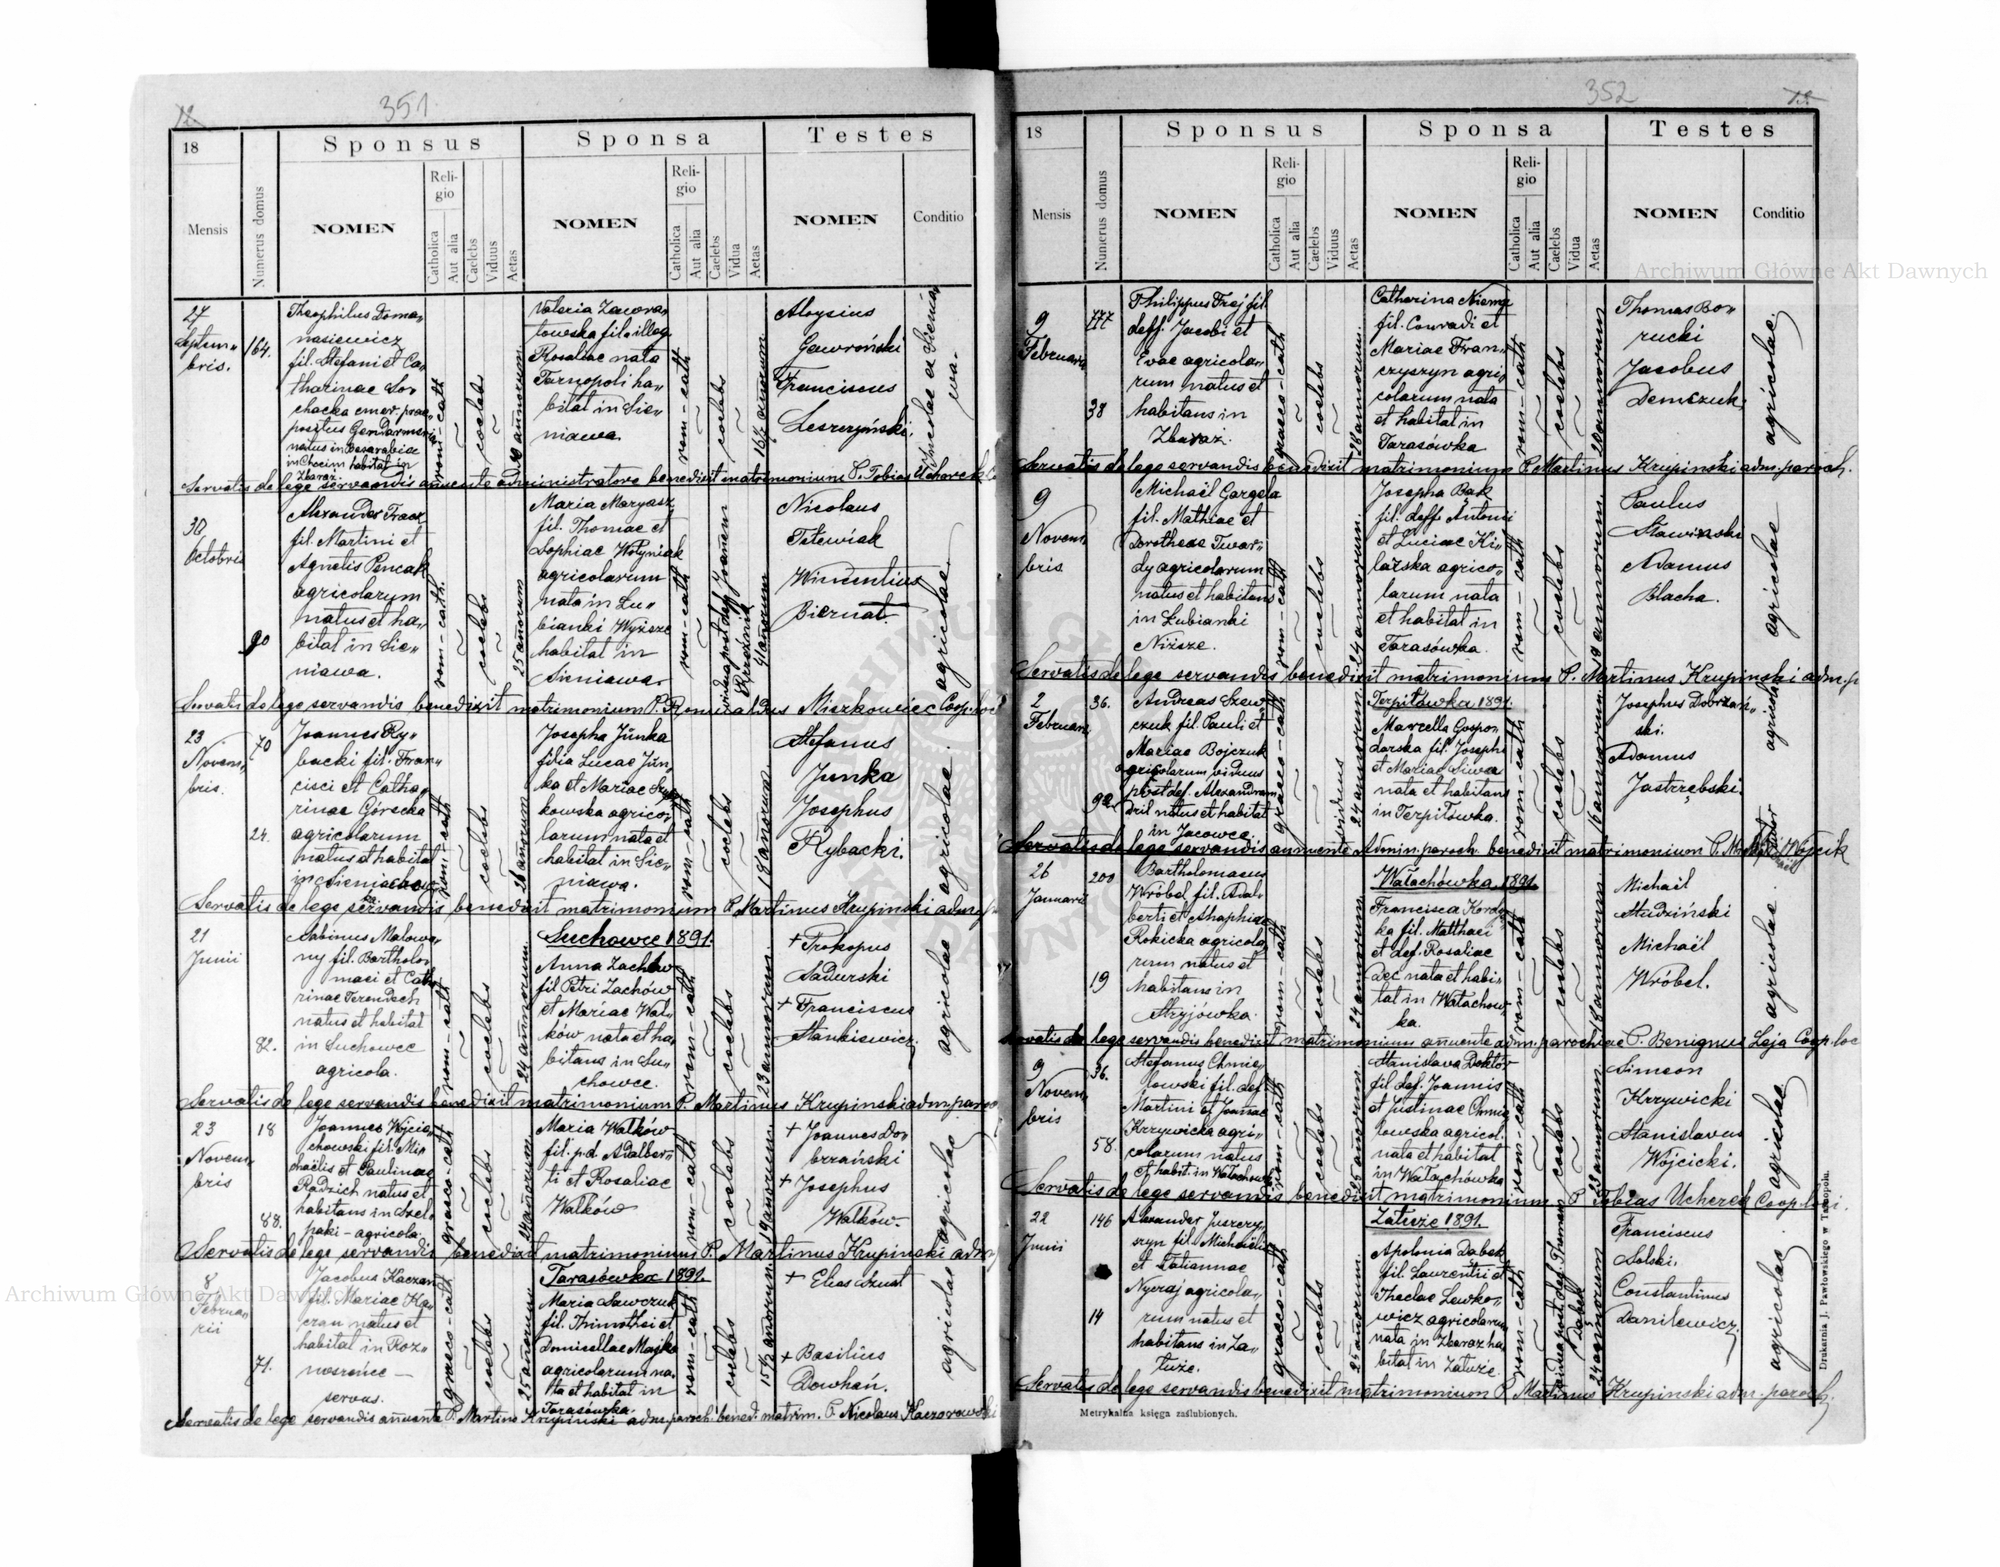 12
351
18
Sponsus
Sponsa
Testes
Mensis
Numerus domus
NOMEN
Religio
Catholica
Aut alia
Caelebs
Viduus
Aetas
NOMEN
Religio
Catholica
Aut alia
Caelebs
Vidua
Aetas
NOMEN
Conditio
27
Septem„
bris.
164.
Theophilus Doma„
nasiewicz
fil. Stefani et Ca„
tharinae So„
chacka emer. prae„
positus Gendarmeriae
natus in Besarabia
in Chocim habitat in
Zbaraż.
rom-cath
coelebs
Valeria Zawora„
fil. illeg.
Rosaliae nata
Tarnopoli ha„
bitat in Sie„
niawa
rom-cath
coelebs
16½ annorum
Aloysius
Gawroński
Franciscus
Leszczyński.
Incolae ex Sienia„
wa.
Servatis de lege servandis annuente administratore benedixit matrimonium P. Tobias Ucherek
30
Octobris
90
Alexander
fil. Martini et
Agnetis Pencak
agricolarum
natus et ha„
bitat in Sie„
niawa.
rom-cath.
coelebs
25 annorum
Maria Maryasz
fil. Thomae et
Sophiae Wołyniak
agricolarum
nata in Łu„
bianki Wyższe
habitat in
Sieniawa.
rom-cath
vidua post def. Joannem
41 annorum
Nicolaus
Tetewiak
Wincentius
Biernat.
agricolae.
Servatis de lege servandis benedixit matrimonium P. Romualdus Mieszkowiec Coop. loc
23
Novem„
bris.
70
24.
Joannes Ry„
backi fil. Fran„
cisci et Catha„
rinae Górecka
agricolarum
natus et habitat
in
rom-cath
coelebs
26 annorum
Josepha Junka
filia Lucae Jun„
ka et Mariae
kowska agrico„
larum nata et
habitat in Sie„
niawa.
rom-cath
coelebs
18 annorum
Stefanus
Junka
Josephus
Rybacki.
agricolae
Servatis de lege servandis benedixit matrimonium P. Martinus Krupinski adm.
21
Junii
82.
Sabinus Malowa„
ny fil. Bartholo„
maei et Cath„
rinae Terendech
natus et habitat
in Suchowce
agricola.
rom-cath
coelebs
24 annorum
Suchowce 1891.
Anna Zachów
fil Petri Zachów
et Mariae Wal„
ków nata et ha„
bitans in Su„
chowce.
rom-cath
coelebs
23 annorum.
+ Prokopus
Sadurski
+ Franciscus
Stankiewicz.
agricolae
Servatis de lege servandis benedixit matrimonium P. Martinus Krupinski adm. paroc
23
Novem„
bris
18
88.
Joannes Wojcie„
chowski fil. Mi„
chaëlis et Paulinae
Radzich natus et
habitans in Szel„
paki - agricola.
graeco-cath
coelebs
24 annorum
Maria Walków
fil. p.d. Adalber„
ti et Rosaliae
Walków
rom-cath
coelebs
19 annorum.
+ Joannes Do„
brzański
+ Josephus
Walków.
agricolae
Servatis de lege servandis benedixit matrimonium P. Martinus Krupinski adm.
8
Februa„
rii
71.
Jacobus Kaczan
fil. Mariae Ka„
czan natus et
habitat in Roz„
noszyńce —
servus.
graeco-cath
coelebs
25 annorum
Tarasówka 1891.
Maria Sawczuk
fil. Thimothei et
Domicellae Majka
agricolarum na„
ta et habitat in
Tarasówka.
rom-cath
coelebs
15½ annorum.
+ Elias Szust
+ Basilius
Dowhań.
agricolae
Servatis de lege servandis annuente P. Martino Krupinski adm. paroch. bened. matrim. P. Nicolaus Kaczorowski
352
18
Sponsus
Sponsa
Testes
Mensis
Numerus domus
NOMEN
Religio
Catholica
Aut alia
Caelebs
Viduus
Aetas
NOMEN
Religio
Catholica
Aut alia
Caelebs
Vidua
Aetas
NOMEN
Conditio
9
Februarii
777
38
Philippus Frej fil.
deff. Jacobi et
Evae agricola„
rum natus et
habitans in
Zbaraż.
graeco-cath
coelebs
28 annorum.
Catharina Niemp
fil. Conradi et
Mariae Fran„
czyszyn agri„
colarum nata
et habitat in
Tarasówka
rom-cath
coelebs
20 annorum
Thomas Bo„
rucki
Jacobus
Demczuk.
agricolae.
Servatis de lege servandis benedixit matrimonium P. Martinus Krupinski adm. paroch.
9
Novem
bris
Michaël Gargola
fil. Mathiae et
Dorotheae Twar„
dy agricolarum
natus et habitans
in Łubianki
Niższe.
rom-cath
coelebs
24 annorum.
Josepha Bąk
fil. deff. Antonii
et Luciae Ki„
lażska agrico„
larum nata
et habitat in
Tarasówka.
rom-cath
coelebs
19 annorum.
Paulus
Sławinski
Adamus
Blacha.
agricolae
Servatis de lege servandis benedixit matrimonium P. Martinus Krupinski adm. p
2
Februarii
36.
92.
Andreas Szew„
czuk fil. Pauli et
Mariae Bojczuk
agricolarum viduus
post def. Alexandram
natus et habitat
in Jacowce.
graeco-cath
viduus
24 annorum.
Terpiłówka 1891.
Marcella Gospo„
darska fil. Josephi
et Mariae Siwea
nata et habitans
in Terpiłówka.
rom-cath
coelebs
16 annorum.
Josephus Dobrzań„
ski.
Adamus
Jastrzębski.
agricolae
Servatis de lege servandis annuente Admin. paroch. benedixit matrimonium P. Wójcik
26
Januarii
200
19
Bartholomaeus
Wróbel fil. Adal„
berti et Ahaphiae
Rokicka agricola„
rum natus et
habitans in
Stryjówka.
rom-cath
coelebs
24 annorum.
Wałachówka 1891.
Francisca Kordo„
ka fil. Matthaei
et def. Rosaliae
Dec nata et habi„
tat in Wałachow„
ka.
rom-cath
coelebs
18 annorum.
Michaël
Studziński
Michaël
Wróbel.
agricolae
Servatis de lege servandis benedixit matrimonium annuente adm. parochiae P. Benignus Łaja Coop. loc
9
Novem„
bris
36.
58.
Stefanus Chmie„
lowski fil. def.
Martini et Joannae
Krzywicka agri„
colarum natus
et habit. in Wałachówka
rom-cath
coelebs
25 annorum.
Stanislava Doktór
fil def. Joannis
et Justinae Chmie
lowska agricol.
nata et habitat
in Wałachówka
rom-cath
coelebs
23 annorum.
Simeon
Krzywicki
Stanislaus
Wójcicki.
agricolae
Servatis de lege servandis benedixit matrimonium P. Tobias Ucherek Coop. loci.
22
Junii
146
14
Alexander Juszczy„
szyn fil. Michaëlis
et Tatiannae
Nyczaj agricola„
rum natus et
habitans in Za„
łuże.
graeco-cath
coelebs
24 annorum.
Załuże 1891.
Apolonia Dąbek
fil. Laurentii et
Theclae Lewko„
wicz agricolarum
nata in Zbaraż ha
bitat in Załuże
rom-cath
vidua post def. Thomam
Dąbek
24 annorum
Franciscus
Solski.
Constantinus
Danilewicz.
agricolae
Servatis de lege servandis benedixit matrimonium P. Martinus Krupinski adm. paroch.
Metrykalna księga zaślubionych.
Drukarnia J. Pawłowskiego w Tarnopolu.
Archiwum Główne Akt Dawnych
Archiwum Główne Akt Dawnych